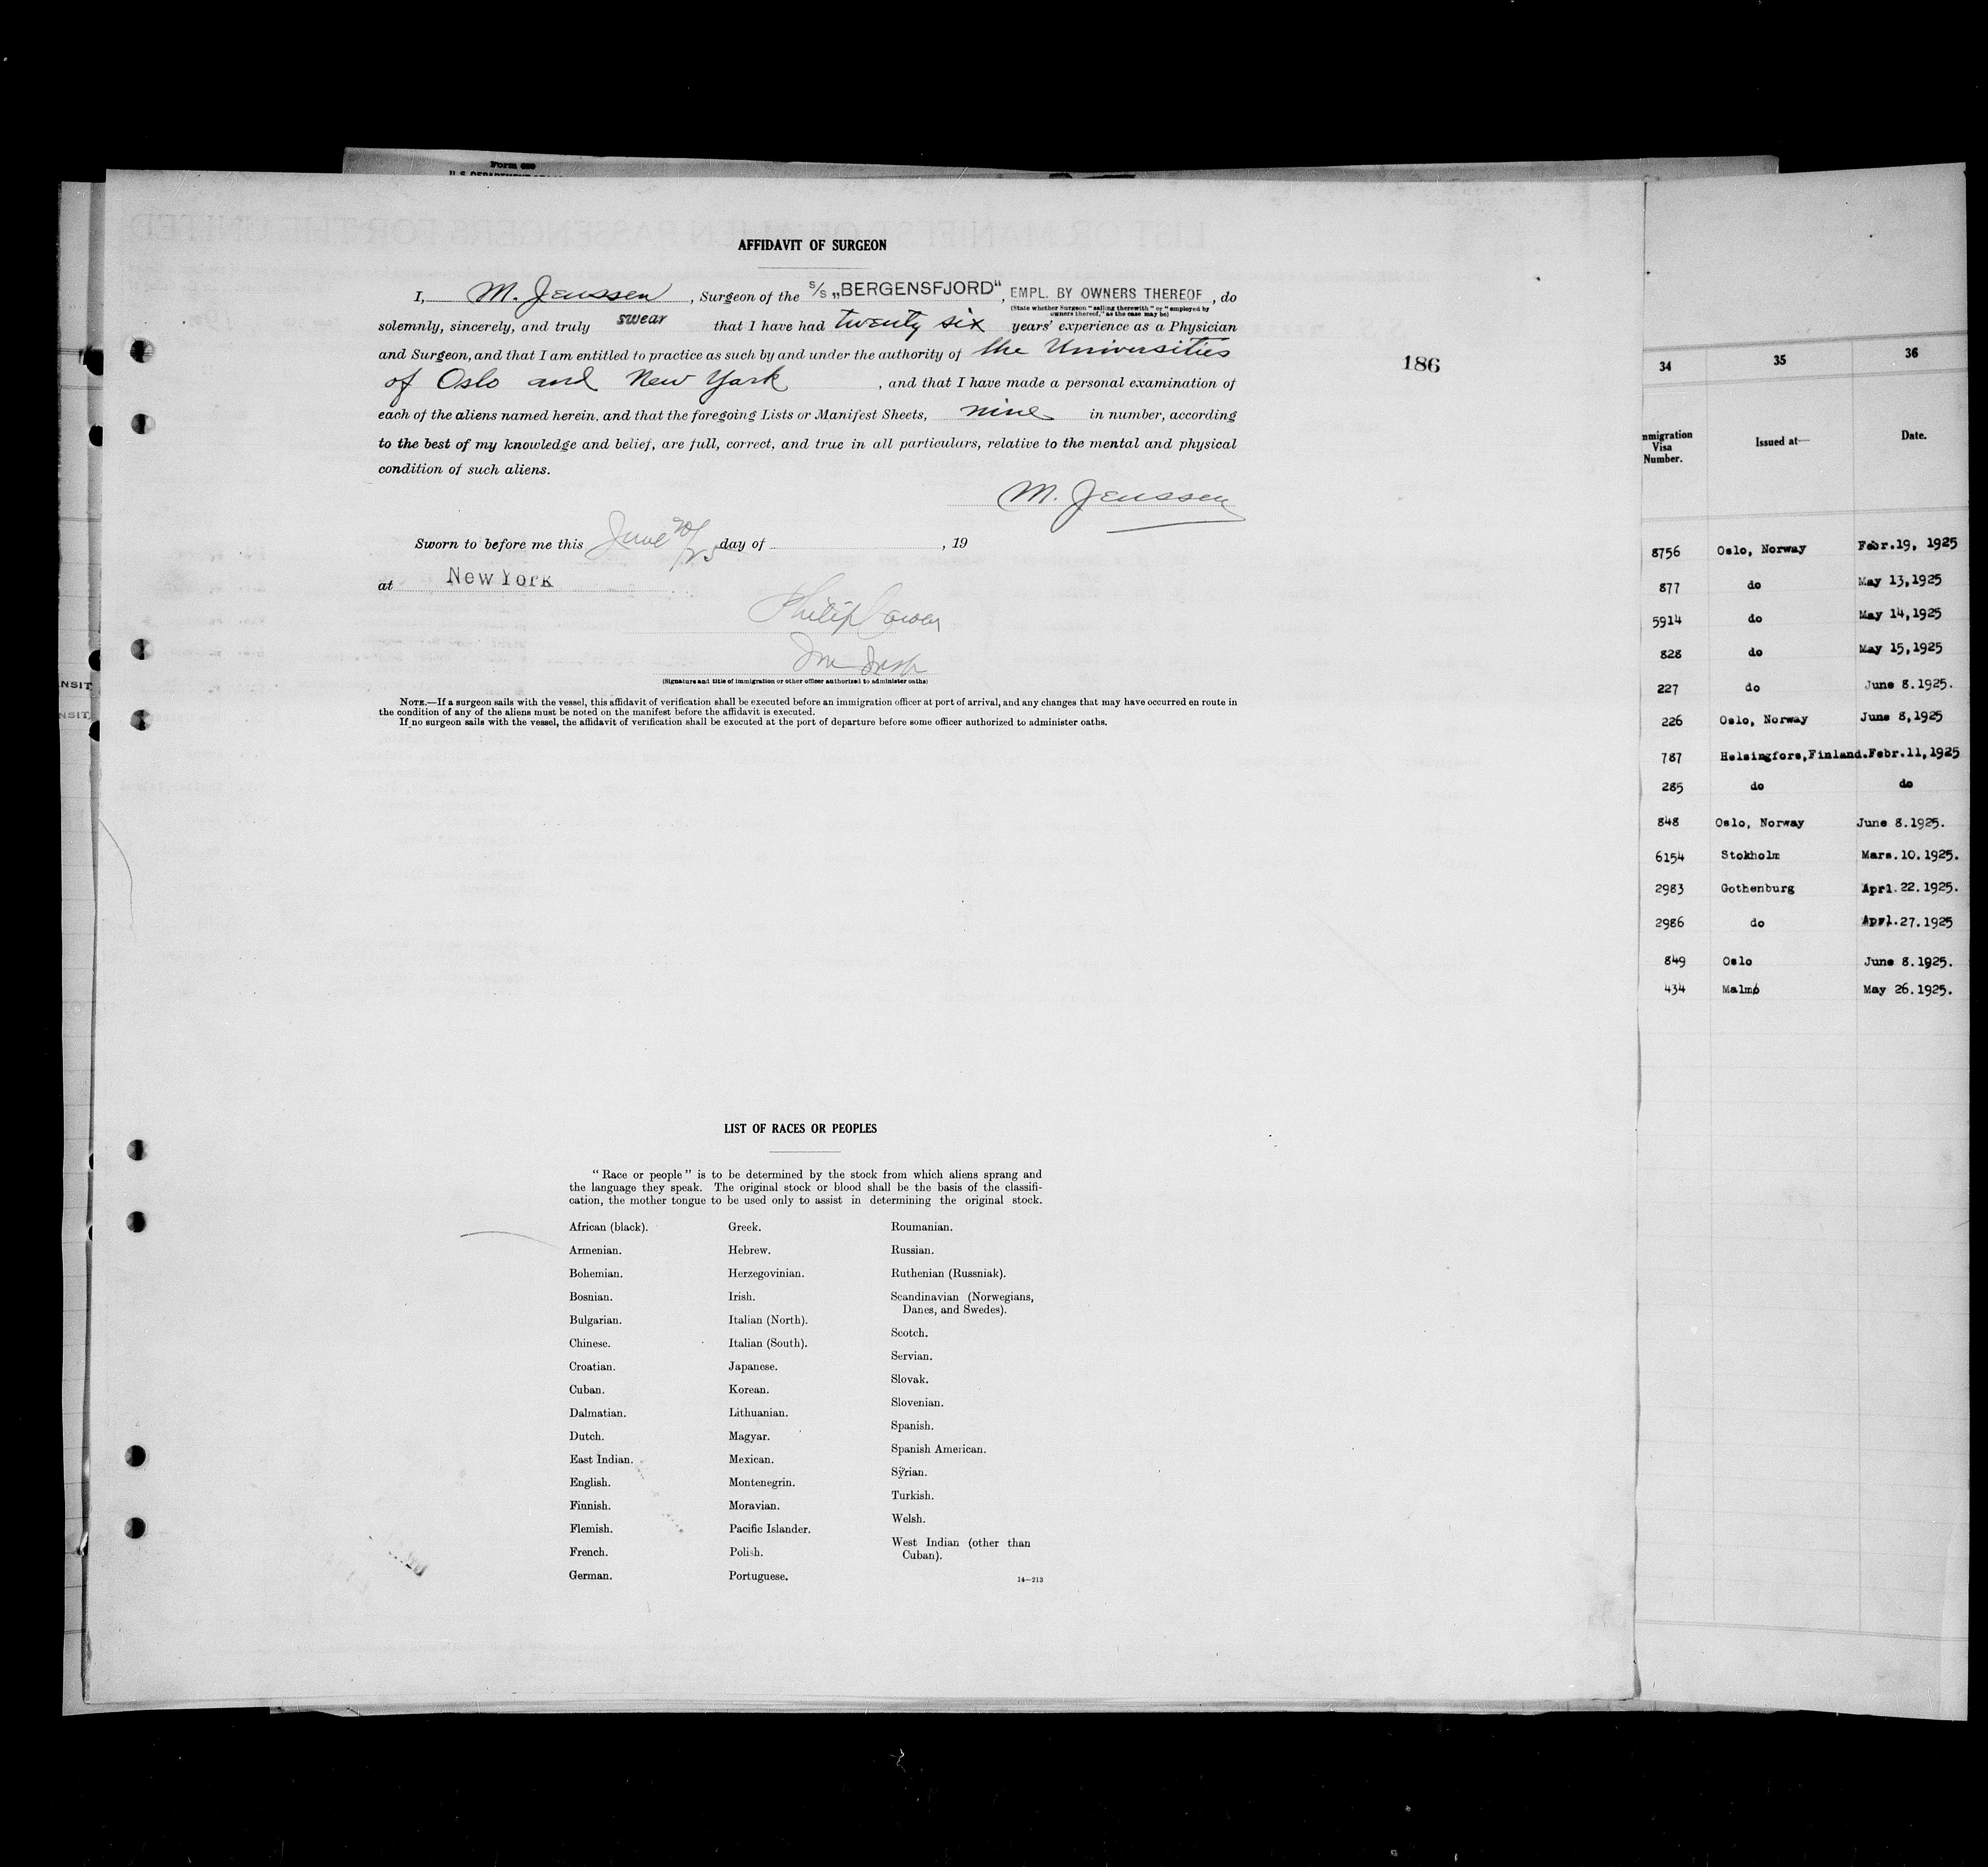 Form 680
AFFIDAVIT OF SURGEON
I, M. Jenssen, Surgeon of the S/S „BERGENSFJORD“, EMPL. BY OWNERS THEREOF, do
(State whether Surgeon "sailing therewith" or "employed by owners thereof," as the case may be)
solemnly, sincerely, and truly swear that I have had twenty six years' experience as a Physician
and Surgeon, and that I am entitled to practice as such by and under the authority of the Universities
of Oslo and New York, and that I have made a personal examination of
each of the aliens named herein, and that the foregoing Lists or Manifest Sheets, nine in number, according
to the best of my knowledge and belief, are full, correct, and true in all particulars, relative to the mental and physical
condition of such aliens.
M. Jenssen
Sworn to before me this June 20/25 day of , 19
at New York
Philip Cowen
(Signature and title of immigration or other officer authorized to administer oaths)
NOTE.—If a surgeon sails with the vessel, this affidavit of verification shall be executed before an immigration officer at port of arrival, and any changes that may have occurred en route in
the condition of any of the aliens must be noted on the manifest before the affidavit is executed.
If no surgeon sails with the vessel, the affidavit of verification shall be executed at the port of departure before some officer authorized to administer oaths.
186
LIST OF RACES OR PEOPLES
"Race or people" is to be determined by the stock from which aliens sprang and
the language they speak. The original stock or blood shall be the basis of the classifi-
cation, the mother tongue to be used only to assist in determining the original stock.
African (black).
Armenian.
Bohemian.
Bosnian.
Bulgarian.
Chinese.
Croatian.
Cuban.
Dalmatian.
Dutch.
East Indian.
English.
Finnish.
Flemish.
French.
German.
Greek.
Hebrew.
Herzegovinian.
Irish.
Italian (North).
Italian (South).
Japanese.
Korean.
Lithuanian.
Magyar.
Mexican.
Montenegrin.
Moravian.
Pacific Islander.
Polish.
Portuguese.
Roumanian.
Russian.
Ruthenian (Russniak).
Scandinavian (Norwegians,
Danes, and Swedes).
Scotch.
Servian.
Slovak.
Slovenian.
Spanish.
Spanish American.
Syrian.
Turkish.
Welsh.
West Indian (other than
Cuban).
14—213
34 35 36
mmigration
Visa
Number.
Issued at—
Date.
8756 Oslo, Norway Febr.19, 1925
877 do May 13,1925
5914 do May 14,1925
828 do May 15,1925
227 do June 8.1925.
226 Oslo, Norway June 8,1925
787 Helsingfors,Finland.Febr.11,1925
285 do do
848 Oslo, Norway June 8.1925.
6154 Stokholm Mars.10.1925.
2983 Gothenburg Aprl.22.1925.
2986 do Aprl.27.1925
849 Oslo June 8.1925.
434 Malmö May 26.1925.
NSIT
NSIT